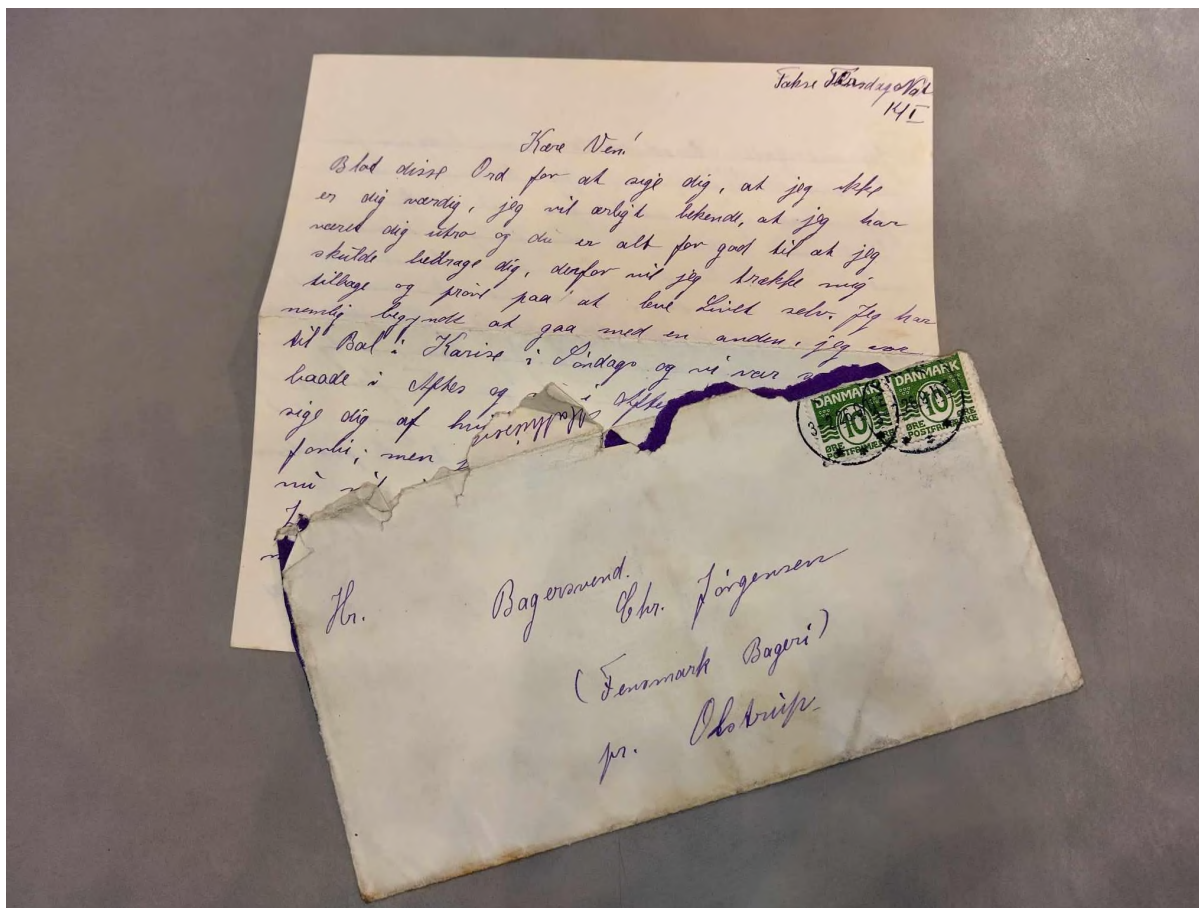 Fakse Torsdag Nat
14 I
Kære Ven!
Blot disse Ord for at sige dig, at jeg ikke
er dig værdig, jeg vil ærligt bekende, at jeg har
været dig utro og du er alt for god til at jeg
skulde bedrage dig, derfor vil jeg trække mig
tilbage og prøve paa at leve Livet selv. Jeg har
nemlig begyndt at gaa med en anden, jeg var
til Bal i Karise i Søndags og vi var
baade i Aftes og
sige dig af
forbi, men
nu
DANMARK
10
ØRE
POSTFRIMÆRKE
DANMARK
10
ØRE
POSTFRIMÆRKE
Hr. Bagersvend.
Chr. Jörgensen
(Fensmark Bageri)
pr. Olstrup.